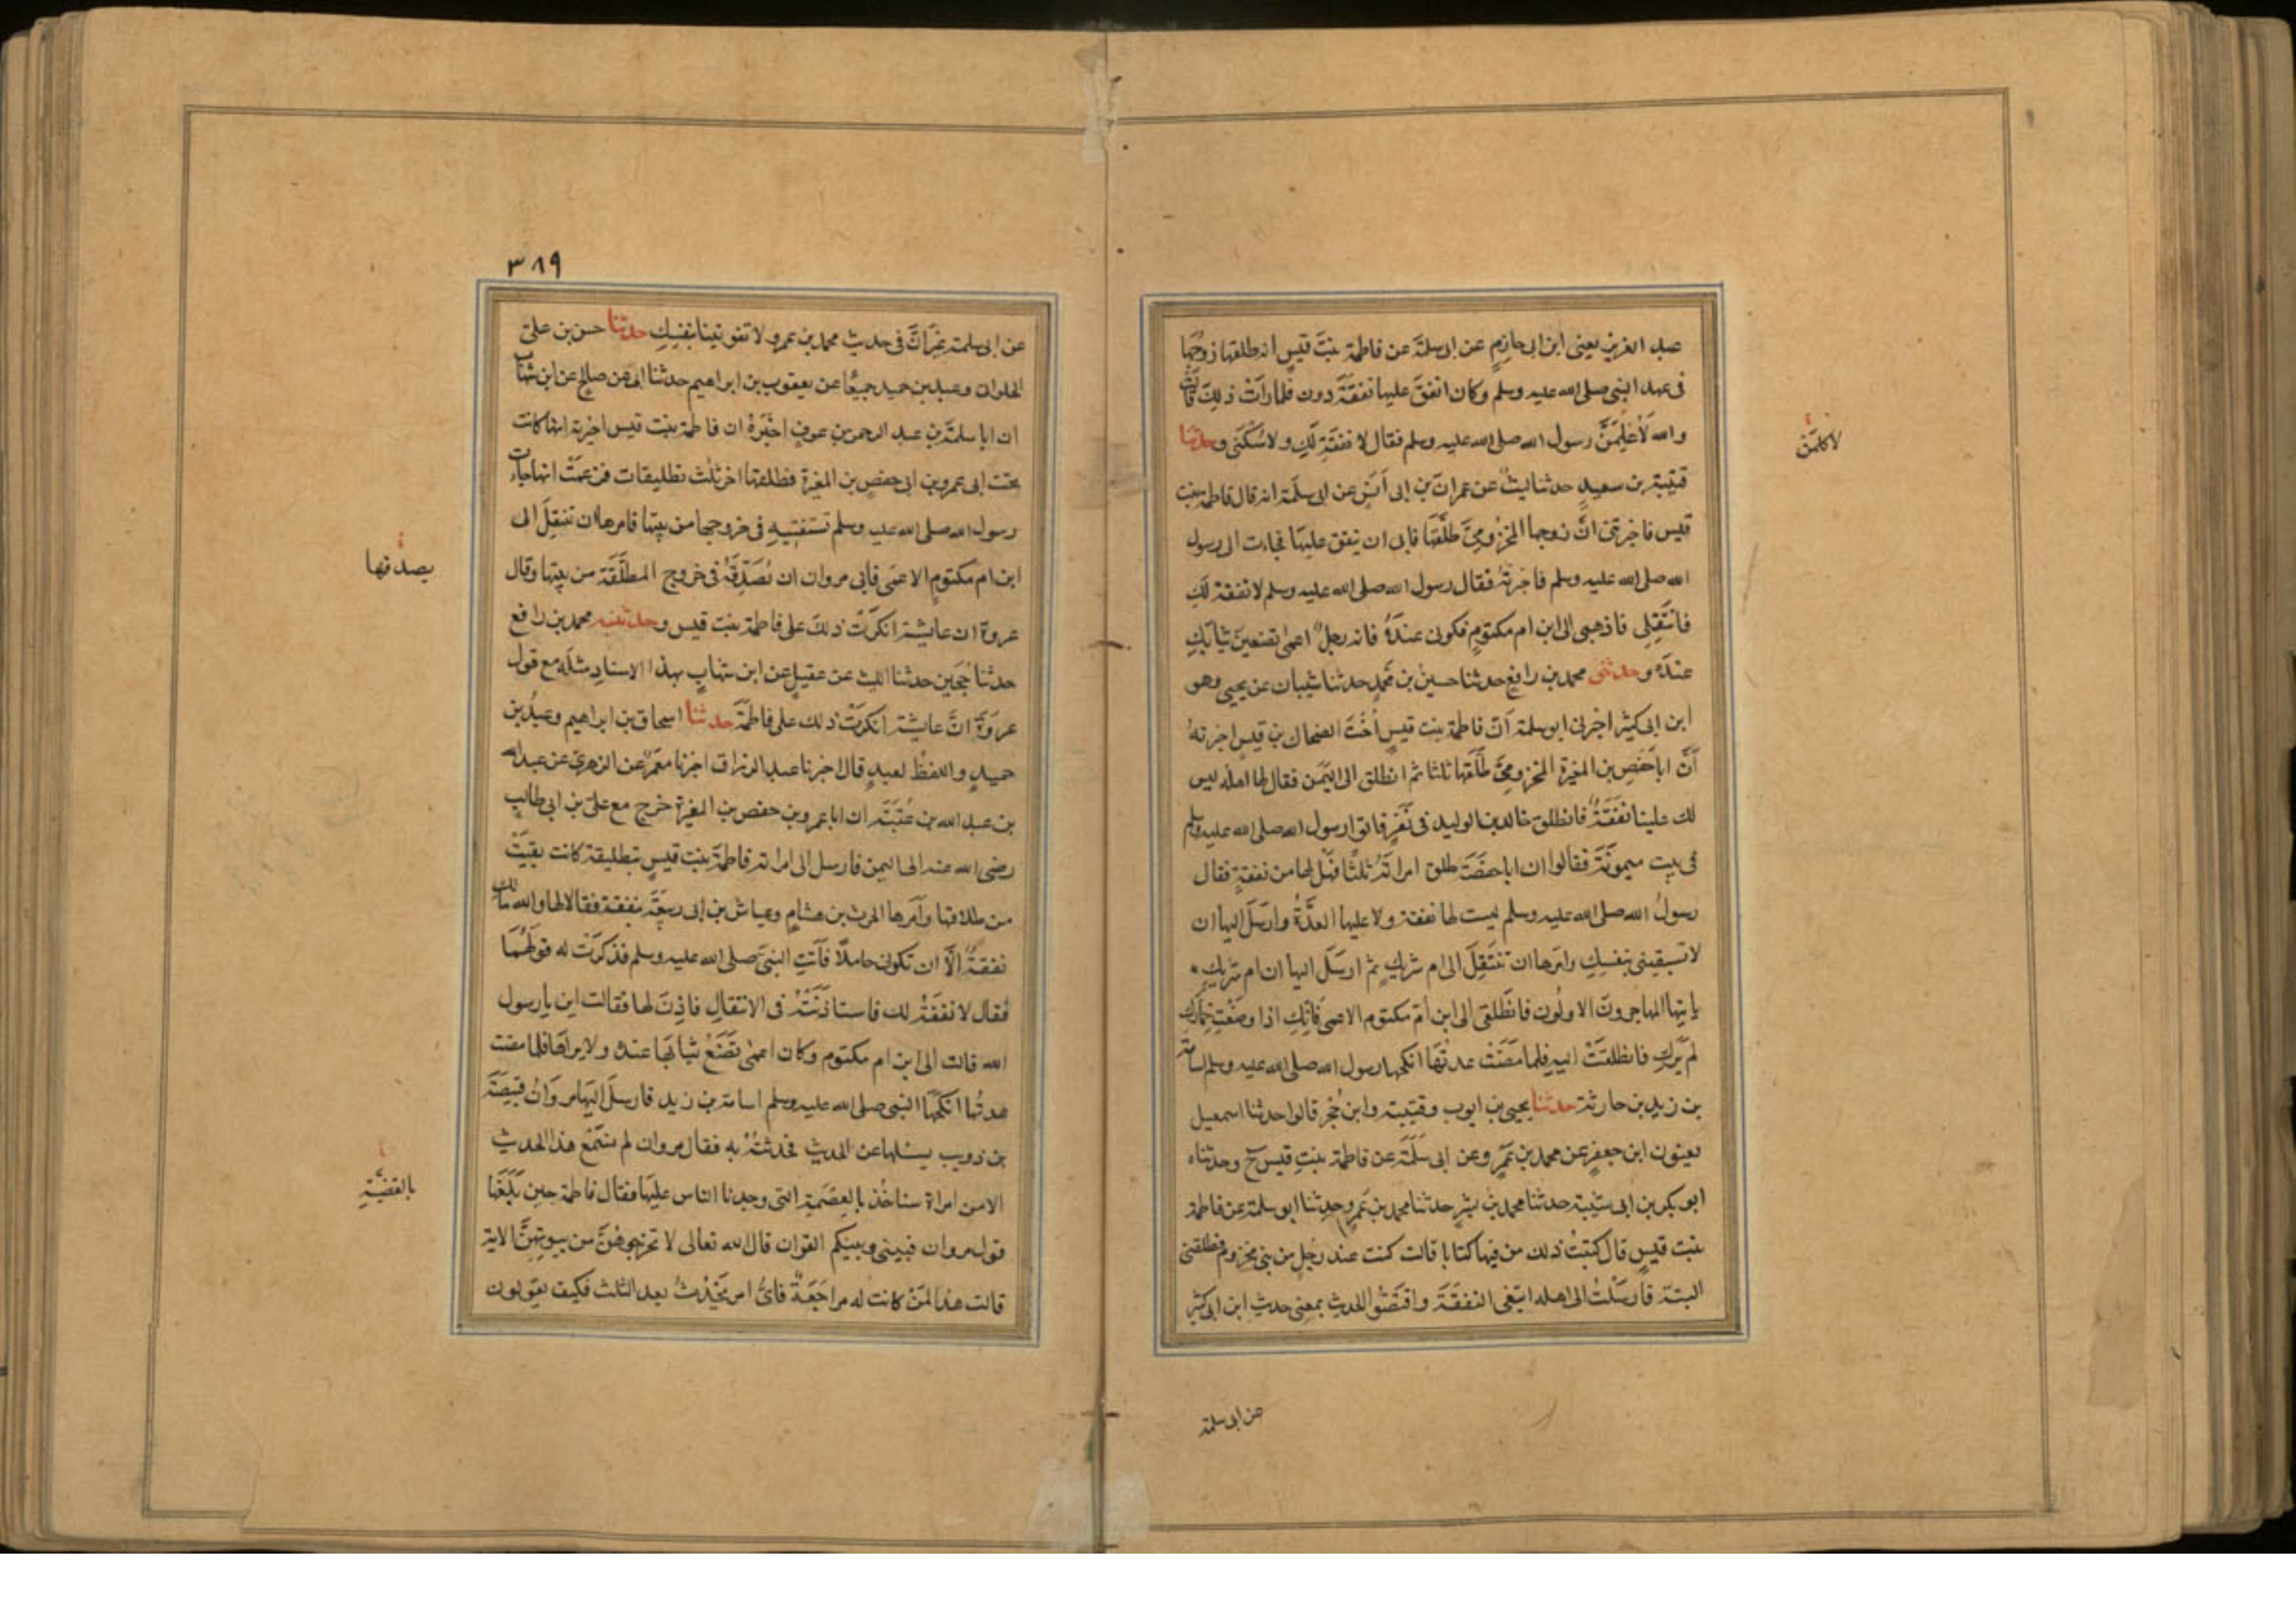 عبد العزيز يعني ابن ابى حازم عن ابى سلمة عن فاطمة بنت قيس انه طلقها زوجها
فى عهد النبى صلى الله عليه وسلم وكان انفق عليها نفقة دون فلما رات ذلك قالت
والله لاعلمن رسول الله صلى الله عليه وسلم فقال لا نفقة لك ولا سكنى وحدثنا
لاكلمن
قتيبة بن سعيد حدثنا ليث عن عمران بن ابى انس عن ابى سلمة انه قال فاطمة بنت
قيس فاخبرتنى ان زوجها المخزومى طلقها فابى ان ينفق عليها فجاءت الى رسول
الله صلى الله عليه وسلم فاخبرته فقال رسول الله صلى الله عليه وسلم لا نفقة لك
فانتقلى فاذهبى الى ابن ام مكتوم فكونى عنده فانه رجل اعمى تضعين ثيابك
عنده وحدثنى محمد بن رافع حدثنا حسين بن محمد حدثنا شيبان عن يحيى وهو
ابن ابى كثير اخبرنى ابو سلمة ان فاطمة بنت قيس اخت الضحاك بن قيس اخبرته
ان ابا حفص بن المغيرة المخزومى طلقها ثلثا ثم انطلق الى اليمن فقال لها اهله ليس
لك علينا نفقة فانطلق خالد بن الوليد فى نفر فاتوا رسول الله صلى الله عليه وسلم
فى بيت ميمونة فقالوا ان ابا حفص طلق امراته ثلثا فهل لها من نفقة فقال
رسول الله صلى الله عليه وسلم ليست لها نفقة ولا عليها العدة وارسل اليها ان
لا تسبقينى بنفسك وامرها ان تنتقل الى ام شريك ثم ارسل اليها ان ام شريك
ياتيها المهاجرون الاولون فانطلقى الى ابن ام مكتوم الاعمى فانك اذا وضعت خمارك
لم يرك فانطلقت اليه فلما مضت عدتها انكحها رسول الله صلى الله عليه وسلم اسامة
بن زيد بن حارثة حدثنا يحيى بن ايوب وقتيبة وابن حجر قالوا حدثنا اسمعيل
يعنون ابن جعفر عن محمد بن عمرو عن ابى سلمة عن فاطمة بنت قيس ح وحدثناه
ابو بكر بن ابى شيبة حدثنا محمد بن بشر حدثنا محمد بن عمرو حدثنا ابو سلمة عن فاطمة
بنت قيس قال كتبت ذلك من فيها كتابا قالت كنت عند رجل من بنى مخزوم فطلقنى
البتة فارسلت الى اهله ابتغى النفقة واقتصوا الحديث بمعنى حديث ابن ابى كثير
عن ابى سلمة
٣٨٩
عن ابى سلمة غير ان فى حديث محمد بن عمرو لا تفوتينا بنفسك حدثنا حسن بن على
الحلوانى وعبد بن حميد جميعا عن يعقوب بن ابراهيم حدثنا ابى عن صالح عن ابن شهاب
ان ابا سلمة بن عبد الرحمن بن عوف اخبره ان فاطمة بنت قيس اخبرته انها كانت
تحت ابى عمرو بن ابى حفص بن المغيرة فطلقها اخر ثلث تطليقات فزعمت انها جاءت
رسول الله صلى الله عليه وسلم تستفتيه فى خروجها من بيتها فامرها ان تنتقل الى
ابن ام مكتوم الاعمى فابى مروان ان تصدقه فى خروج المطلقة من بيتها وقال
يصدقها
عروة ان عايشة انكرت ذلك على فاطمة بنت قيس وحدثنيه محمد بن رافع
حدثنا حجين حدثنا الليث عن عقيل عن ابن شهاب بهذا الاسناد مثله مع قول
عروة ان عايشة انكرت ذلك على فاطمة حدثنا اسحاق بن ابراهيم وعبد بن
حميد واللفظ لعبد قال اخبرنا عبد الرزاق اخبرنا معمر عن الزهرى عن عبد الله
بن عبد الله بن عتبة ان ابا عمرو بن حفص بن المغيرة خرج مع على بن ابى طالب
رضى الله عنه الى اليمن فارسل الى امراته فاطمة بنت قيس بتطليقة كانت بقيت
من طلاقها وامرها الحرث بن هشام وعياش بن ابى ربيعة بنفقة فقالا لها والله مالك
نفقة الا ان تكونى حاملا فاتت النبى صلى الله عليه وسلم فذكرت له قولهما
فقال لا نفقة لك فاستاذنته فى الانتقال فاذن لها فقالت اين يا رسول
الله قالت الى ابن ام مكتوم وكان اعمى تضع ثيابها عنده ولا يراها فلما مضت
عدتها انكحها النبى صلى الله عليه وسلم اسامة بن زيد فارسل اليها مروان قبيصة
بن ذويب يسئلها عن الحديث فحدثته به فقال مروان لم نسمع هذا الحديث
الا من امراة سناخذ بالعصمة التى وجدنا الناس عليها فقال فاطمة حين بلغها
بالقضية
قول مروان فبينى وبينكم القران قال الله تعالى لا تخرجوهن من بيوتهن الاية
قالت هذا لمن كانت له مراجعة فاى امر يحدث بعد الثلث فكيف تقولون